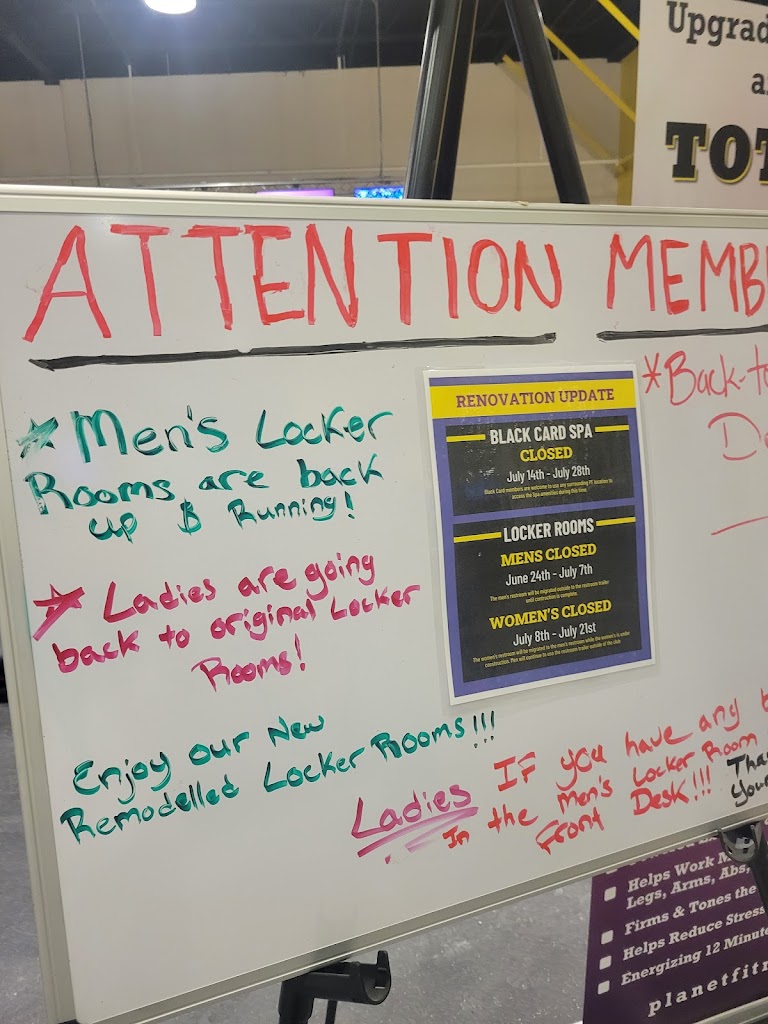 Upgrad
a
TOT
ATTENTION MEMB
Men's Locker
Rooms are back
up & Running!
Ladies are going
back to original Locker
Rooms!
Enjoy our New
Remodelled Locker Rooms!!!
RENOVATION UPDATE
BLACK CARD SPA
CLOSED
July 14th - July 28th
Black Card members are welcome to use any surrounding PF location to
access the Spa amenities during this time.
LOCKER ROOMS
MENS CLOSED
June 24th - July 7th
The men's restroom will be migrated outside to the restroom trailer
until contruction is complete.
WOMEN'S CLOSED
July 8th - July 21st
The women's restroom will be migrated to the men's restroom while the women's is under
construction. Men will continue to use the restroom trailer outside of the club
*Back-to
De
Ladies IF you have any b
In the Men's Locker Room
Front Desk!!!
Tha
Your
Helps Work M
Legs, Arms, Abs,
Firms & Tones the
Helps Reduce Stress
Energizing 12 Minute
planetfitn